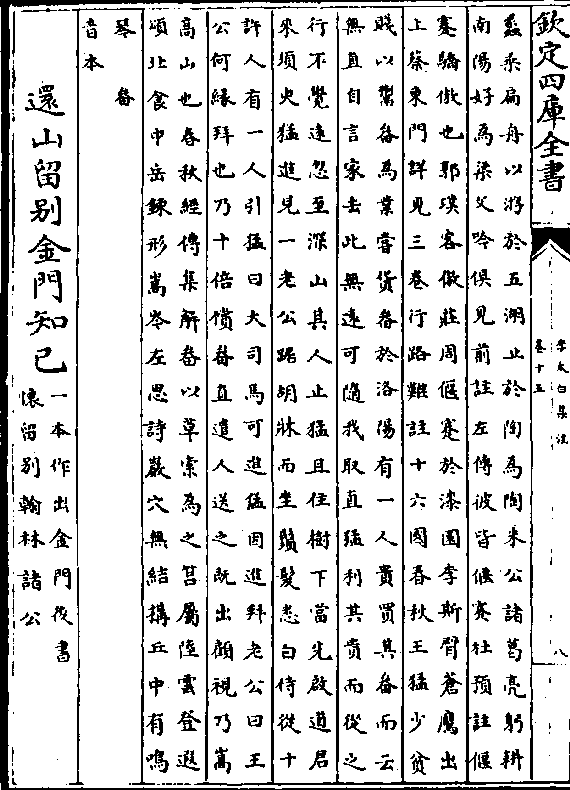 欽定四庫全書
李太白集注
卷十五
八
蠡乘扁舟以游於五湖止於陶為陶朱公諸葛亮躬耕
南陽好為梁父吟俱見前註左傳彼皆偃蹇杜預註偃
蹇驕傲也郭璞客傲莊周偃蹇於漆園李斯臂蒼鷹出
上蔡東門詳見三卷行路難註十六國春秋王猛少貧
賤以鬻畚為業嘗貨畚於洛陽有一人貴買其畚而云
無直自言家去此無遠可隨我取直猛利其貴而從之
行不覺遠忽至深山其人止猛且住樹下當先啟道君
來須臾猛進見一老公踞胡牀而坐鬚髮悉白侍從十
許人有一人引猛曰大司馬可進猛因進拜老公曰王
公何縁拜也乃十倍償畚直遣人送之既出顧視乃嵩
高山也春秋經傳集解畚以草索為之筥屬陸雲登遐
頌北食中岳鍊形嵩岑左思詩巖穴無結搆丘中有鳴
琴 畚
音本
還山留别金門知己
一本作出金門後書
懷留别翰林諸公